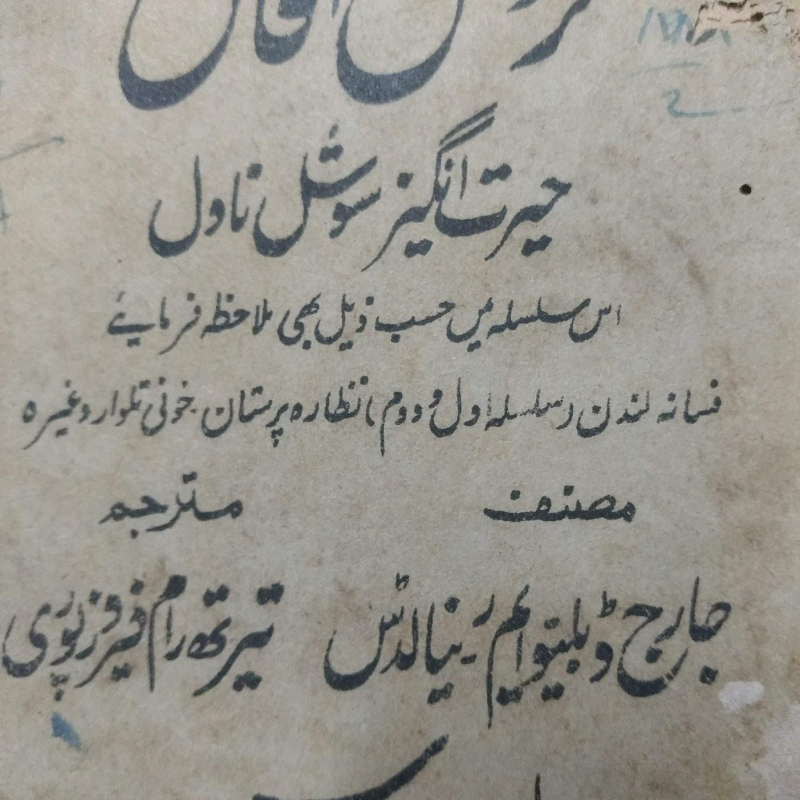 حیرت انگیز سوشل ناول
اس سلسلہ میں حسب ذیل بھی ملاحظہ فرمایئے
فسانہ لندن (سلسلہ اول و دوم) نظارہ پرستان۔ خونی تلوار وغیرہ
مصنف مترجم
جارج ڈبلیو ایم رینالڈس تیرتھ رام فیروزپوری